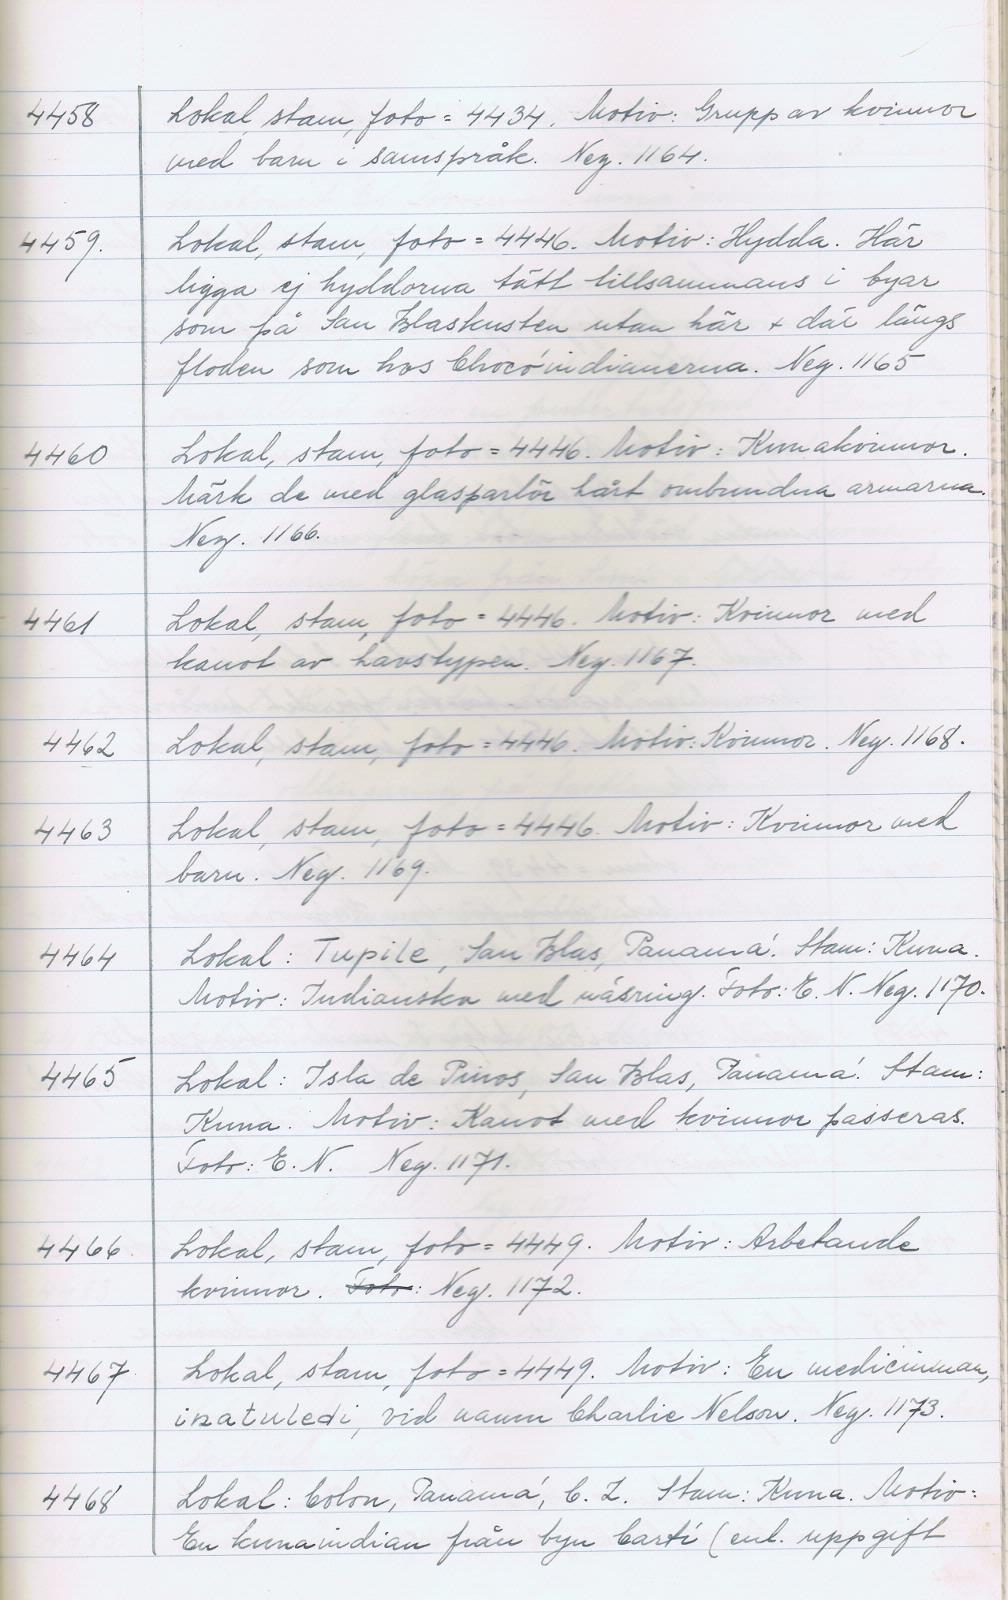 4458 Lokal, stam, foto = 4434. Motiv: Grupp av kvinnor
med barn i samspråk. Neg. 1164.
4459. Lokal, stam, foto = 4446. Motiv: Hydda. Här
ligga ej hyddorna tätt tillsammans i byar
som på San Blaskusten utan här + där längs
floden som hos Chocóindianerna. Neg. 1165
4460 Lokal, stam, foto = 4446. Motiv: Kunakvinnor.
Märk de med glaspärlor hårt ombundna armarna.
Neg. 1166.
4461 Lokal, stam, foto = 4446. Motiv: Kvinnor med
kanot av havstypen. Neg. 1167.
4462 Lokal, stam, foto = 4446. Motiv: Kvinnor. Neg. 1168.
4463 Lokal, stam, foto = 4446. Motiv: Kvinnor med
barn. Neg. 1169.
4464 Lokal: Tupile, San Blas, Panamá. Stam: Kuna.
Motiv: Indianska med näsring. Foto: E. N. Neg. 1170.
4465 Lokal: Isla de Pinos, San Blas, Panamá. Stam:
Kuna. Motiv: Kanot med kvinnor passeras.
Foto: E. N. Neg. 1171.
4466. Lokal, stam, foto = 4449. Motiv: Arbetande
kvinnor. Foto: Neg. 1172.
4467 Lokal, stam, foto = 4449. Motiv: En medicinman,
inatuledi, vid namn Charlie Nelson. Neg. 1173.
4468 Lokal: Colon, Panamá, C. Z. Stam: Kuna. Motiv:
En kunaindian från byn Cartí (enl. uppgift